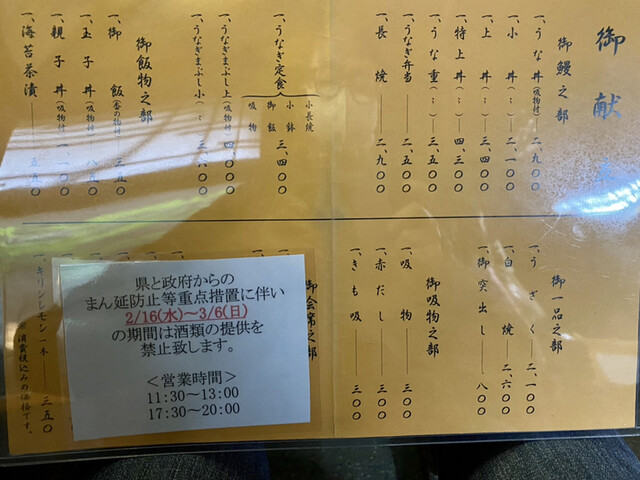 御献
御鰻之部
一、うな丼(吸物付)――二、九〇〇
一、小丼(〃)――二、一〇〇
一、上丼(〃)――三、四〇〇
一、特上丼(〃)――四、三〇〇
一、うな重(〃)――三、五〇〇
一、うなぎ弁当――二、五〇〇
一、長焼――二、九〇〇
一、うなぎ定食
小長焼
小鉢
御飯
吸物
三、四〇〇
一、うなぎまぶし上(吸物付)四、〇〇〇
一、うなぎまぶし小(〃)三、〇〇
御飯物之部
一、御飯(香の物付)――三五〇
一、玉子丼(吸物付)――八五〇
一、親子丼(吸物付)一、一〇〇
一、海苔茶漬――五五〇
御一品之部
一、うざく――二、一〇〇
一、白焼――二、六〇〇
一、御突出し――八〇〇
御吸物之部
一、吸物――三〇〇
一、赤だし――三〇〇
一、きも吸――三〇〇
御会席之部
一、キリンレモン一本――三五〇
※消費税込みの価格です。
県と政府からの
まん延防止等重点措置に伴い
2/16(水)～3/6(日)
の期間は酒類の提供を
禁止致します。
＜営業時間＞
11:30～13:00
17:30～20:00